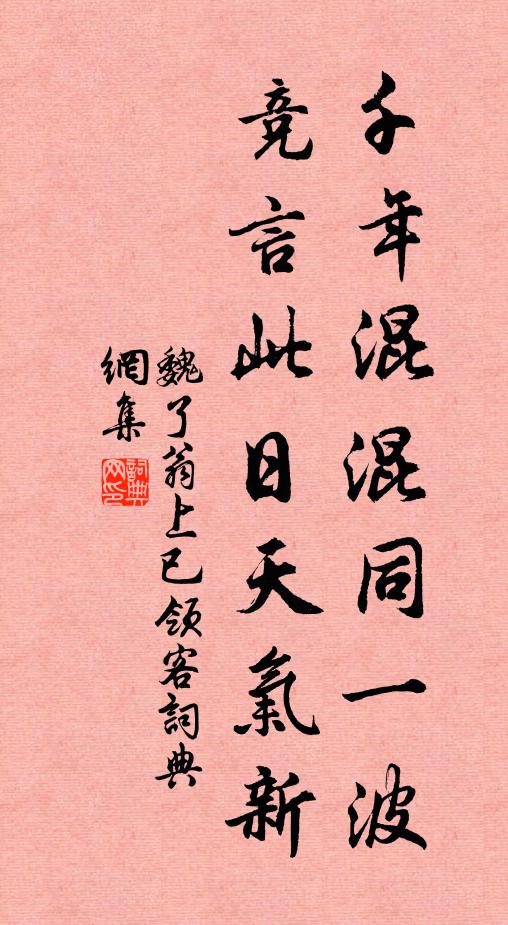 千年混混同一波
竞言此日天氣新
魏了翁上已領客詞典
網集
詞典網印